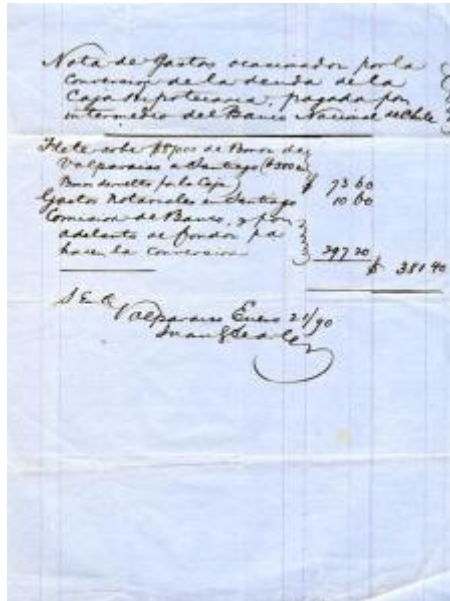 Nota de Gastos ocasionados por la
Conversion de la deuda de la
Caja Hipotecaria, pagada por
intermedio del Banco Nacional de Chile
Flete sobre de Bonos de
Valparaiso a Santiago
Bonos por la Caja) $ 73 60
Gastos Notariales en Santiago 10 60
Comision de Banco, y por
adelanto de fondos pa
hacer la conversion 297 20
$ 381 40
S. E. O.
Valparaiso Enero 21/90
Juan Searle